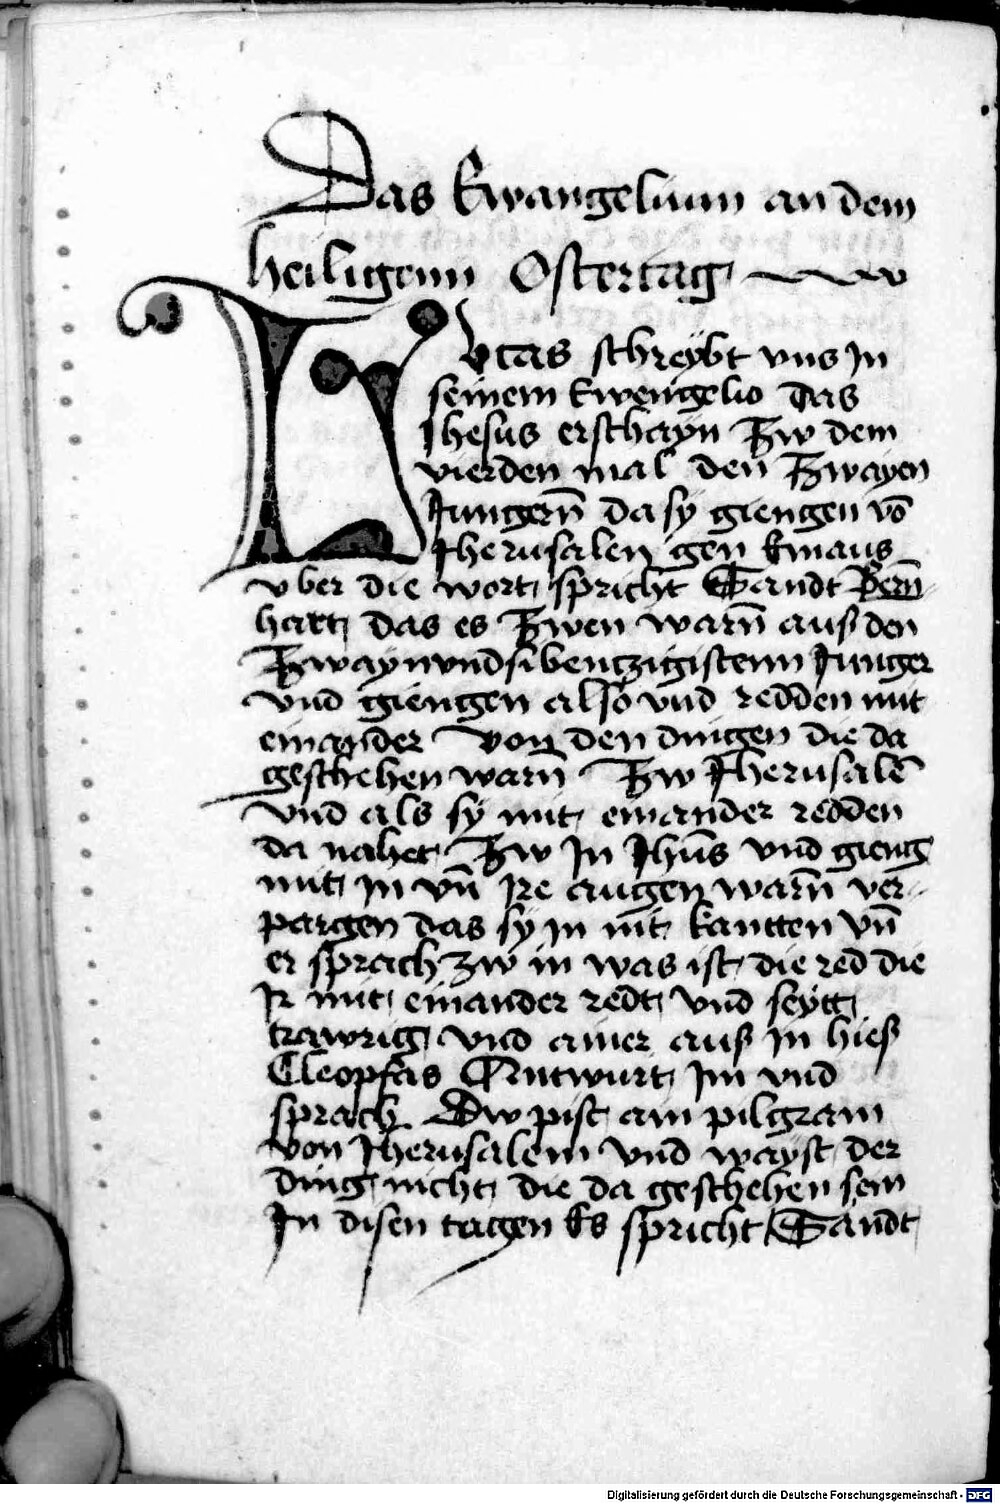 Das Ewangelium an dem
heiligenn Ostertag
Lucas schreybt vns Jn
seinem Ewengelio das
Jhesus erschayn Zw dem
vierden mal den Zwayen
Jungern̄ da sy giengen vō
Jherusalen gen Emaus
vber die wort spricht Sandt Bern̄
hart das es Zwen warn̄ auß den
Zwaynvndsibentzigistenn Junger
vnd giengen also vnd redden mit
einander von den dingen die da
geschehen warn̄ Zw Jherusalē
vnd als sy mit einander redden
da nahet Zw Jn Jhūs vnd gieng
mit Jn vn̄ Jre augen warn̄ ver-
pargen das sy Jn nit kantten vn̄
er sprach zw in was ist die red die
Jr mit einander redt vnd seytt
trawrig vnd ainer auß Jn hieß
Cleopfas Antwurt Jm vnd
sprach Dw pist ain pilgram
von Jherusalem vnd wayst der
ding nicht die da geschehen sein
Jn disen tagen Es spricht Sandt
Digitalisierung gefördert durch die Deutsche Forschungsgemeinschaft - DFG